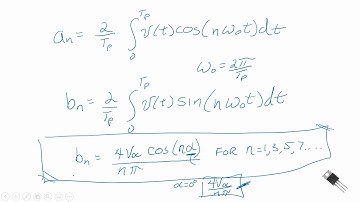 aₙ = 2/Tₚ ∫₀^Tₚ v(t) cos(nω₀t) dt
ω₀ = 2π/Tₚ
bₙ = 2/Tₚ ∫₀^Tₚ v(t) sin(nω₀t) dt
bₙ = 4Vdc cos(nα)/nπ FOR n=1,3,5,7....
α=0° 4Vdc/nπ